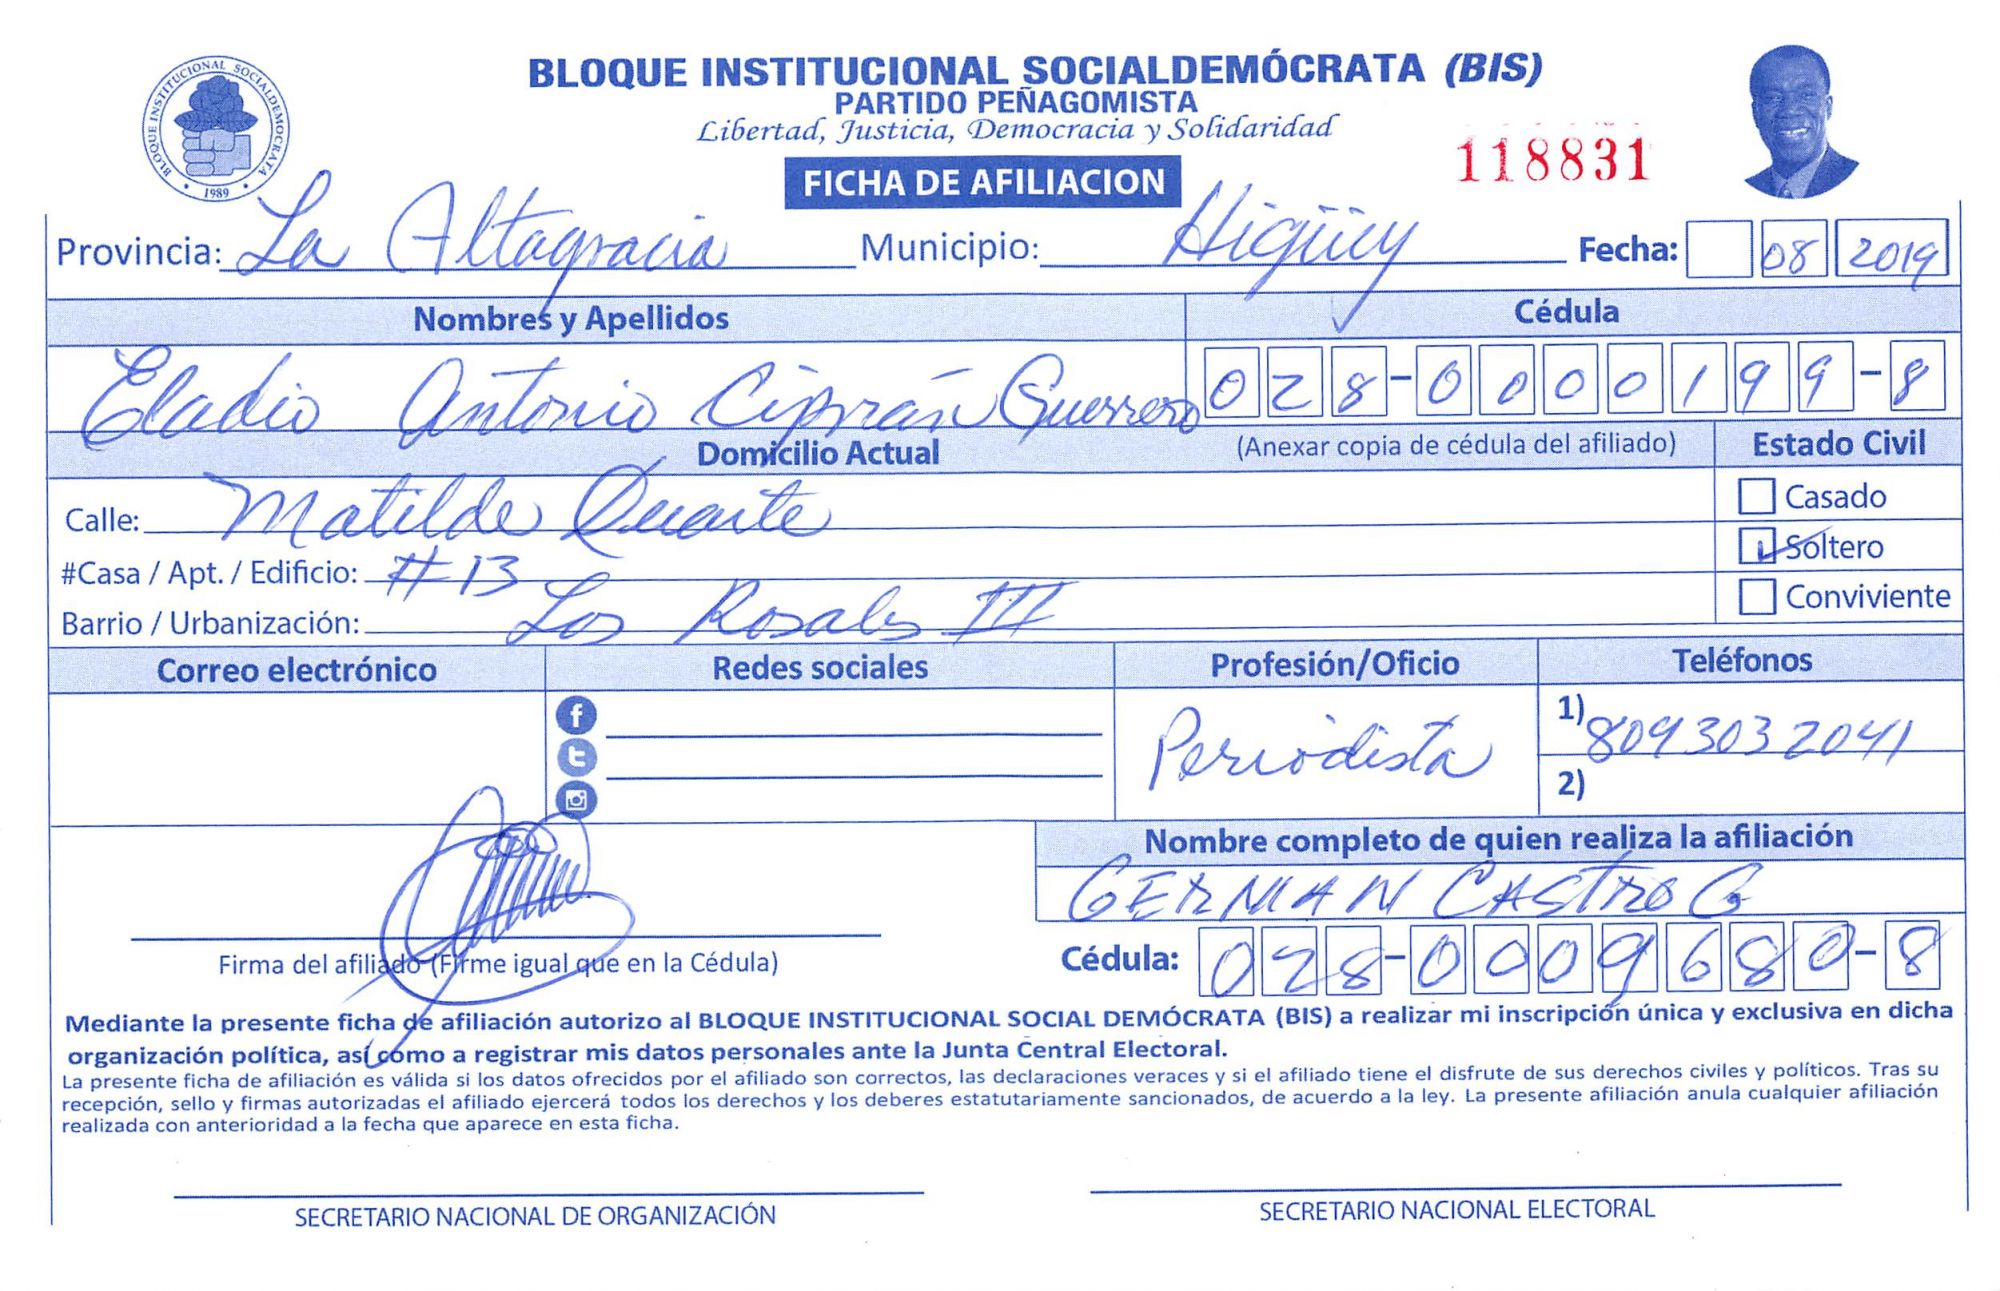 BLOQUE INSTITUCIONAL SOCIALDEMÓCRATA (BIS)
PARTIDO PEÑAGOMISTA
Libertad, Justicia, Democracia y Solidaridad
BLOQUE INSTITUCIONAL SOCIALDEMOCRATA
1989
118831
FICHA DE AFILIACION
Provincia: La Altagracia Municipio: Higüey Fecha: 08 2019
Nombres y Apellidos Cédula
Eladio Antonio Ciprián Guerrero 028-0000199-8
Domicilio Actual (Anexar copia de cédula del afiliado) Estado Civil
Calle: Matilde Duarte Casado
#Casa / Apt. / Edificio: #13 Soltero
Barrio / Urbanización: Los Rosales III Conviviente
Correo electrónico Redes sociales Profesión/Oficio Teléfonos
Periodista 1) 8093032041
2)
Nombre completo de quien realiza la afiliación
GERMAN CASTRO G
Firma del afiliado (Firme igual que en la Cédula) Cédula: 028-0009680-8
Mediante la presente ficha de afiliación autorizo al BLOQUE INSTITUCIONAL SOCIAL DEMÓCRATA (BIS) a realizar mi inscripción única y exclusiva en dicha
organización política, así como a registrar mis datos personales ante la Junta Central Electoral.
La presente ficha de afiliación es válida si los datos ofrecidos por el afiliado son correctos, las declaraciones veraces y si el afiliado tiene el disfrute de sus derechos civiles y políticos. Tras su
recepción, sello y firmas autorizadas el afiliado ejercerá todos los derechos y los deberes estatutariamente sancionados, de acuerdo a la ley. La presente afiliación anula cualquier afiliación
realizada con anterioridad a la fecha que aparece en esta ficha.
SECRETARIO NACIONAL DE ORGANIZACIÓN SECRETARIO NACIONAL ELECTORAL